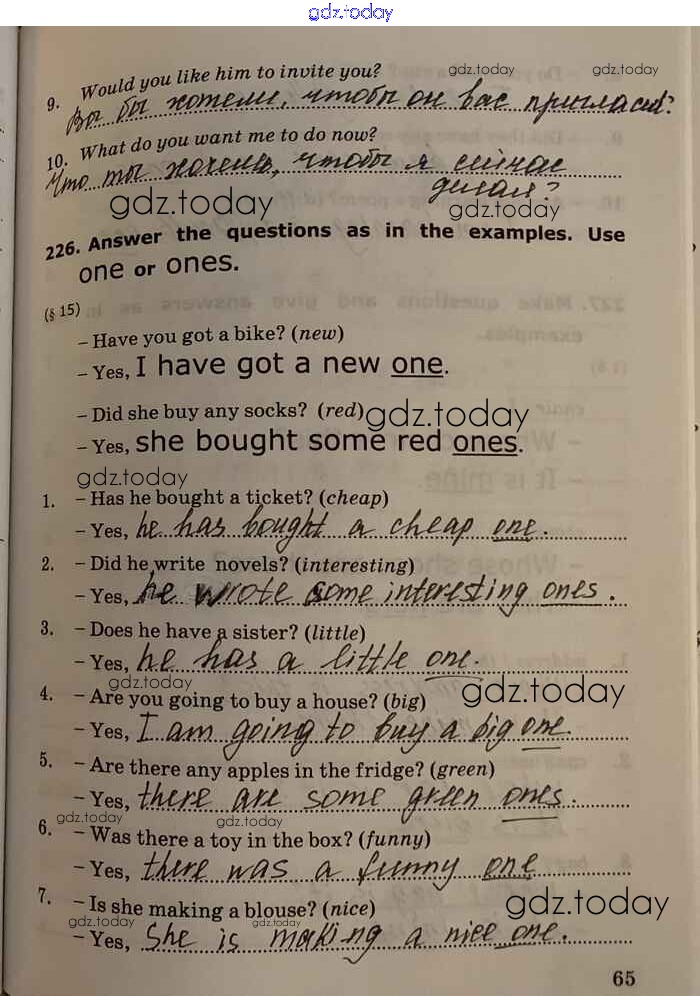 gdz.today
9. Would you like him to invite you? gdz.today gdz.today
Вы бы хотели, чтобы он вас пригласил?
10. What do you want me to do now?
Что ты хочешь, чтобы я сейчас
делал?
gdz.today gdz.today
226. Answer the questions as in the examples. Use
one or ones.
(§ 15)
– Have you got a bike? (new)
– Yes, I have got a new one.
– Did she buy any socks? (red) gdz.today
– Yes, she bought some red ones.
gdz.today
1. – Has he bought a ticket? (cheap)
– Yes, he has bought a cheap one.
2. – Did he write novels? (interesting)
– Yes, he wrote some interesting ones.
3. – Does he have a sister? (little)
– Yes, he has a little one.
gdz.today gdz.today
4. – Are you going to buy a house? (big)
– Yes, I am going to buy a big one.
5. – Are there any apples in the fridge? (green)
– Yes, there are some green ones.
gdz.today gdz.today
6. – Was there a toy in the box? (funny)
– Yes, there was a funny one
7. – Is she making a blouse? (nice) gdz.today
gdz.today gdz.today
– Yes, She is making a nice one.
65